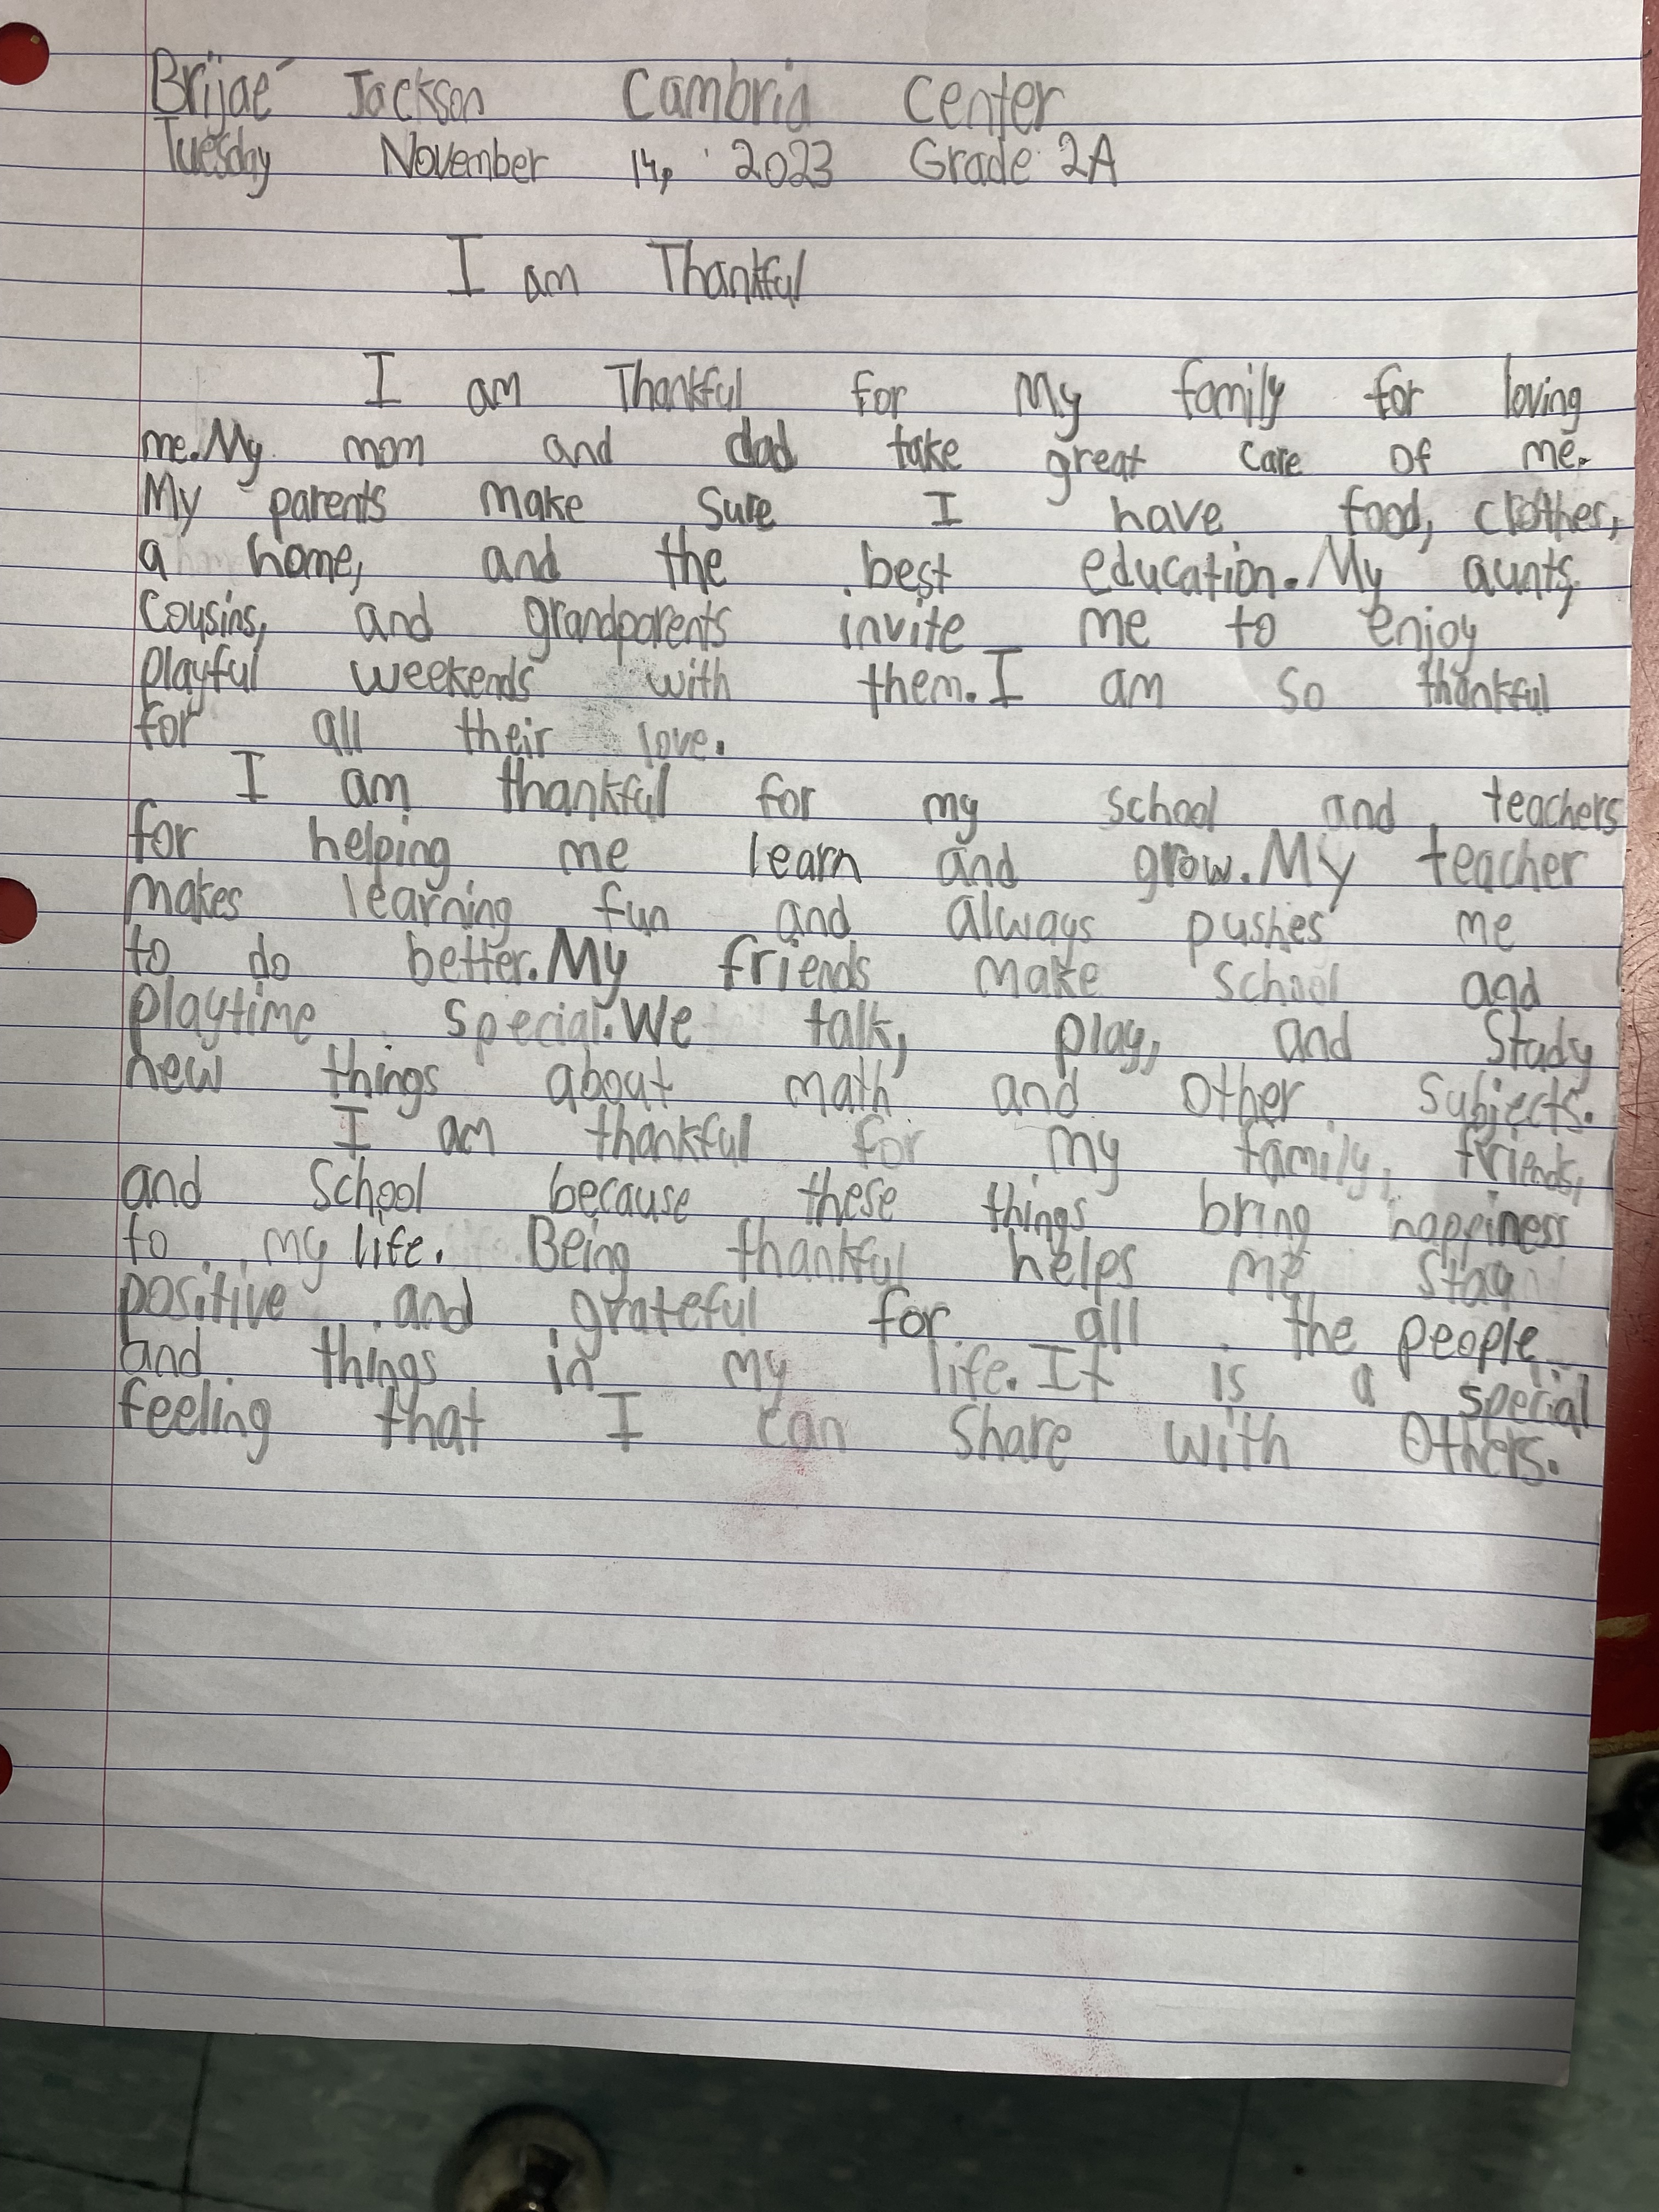 Brijae´ Jackson Cambria Center
Tuesday November 14, 2023 Grade 2A
I am Thankful
I am Thankful for My family for loving
me. My mom and dad take great care of me.
My parents make sure I have food, clothes,
a home, and the best education. My aunts,
cousins, and grandparents invite me to enjoy
playful weekends with them. I am so thankful
for all their love.
I am thankful for my school and teachers
for helping me learn and grow. My teacher
makes learning fun and always pushes me
to do better. My friends make school and
playtime special. We talk, play, and Stady
new things about math and other subjects.
I am thankful for my family, friends,
and school because these things bring happiness
to my life. Being thankful helps me stay
positive and grateful for all the people
and things in my life. It is a special
feeling that I can share with others.